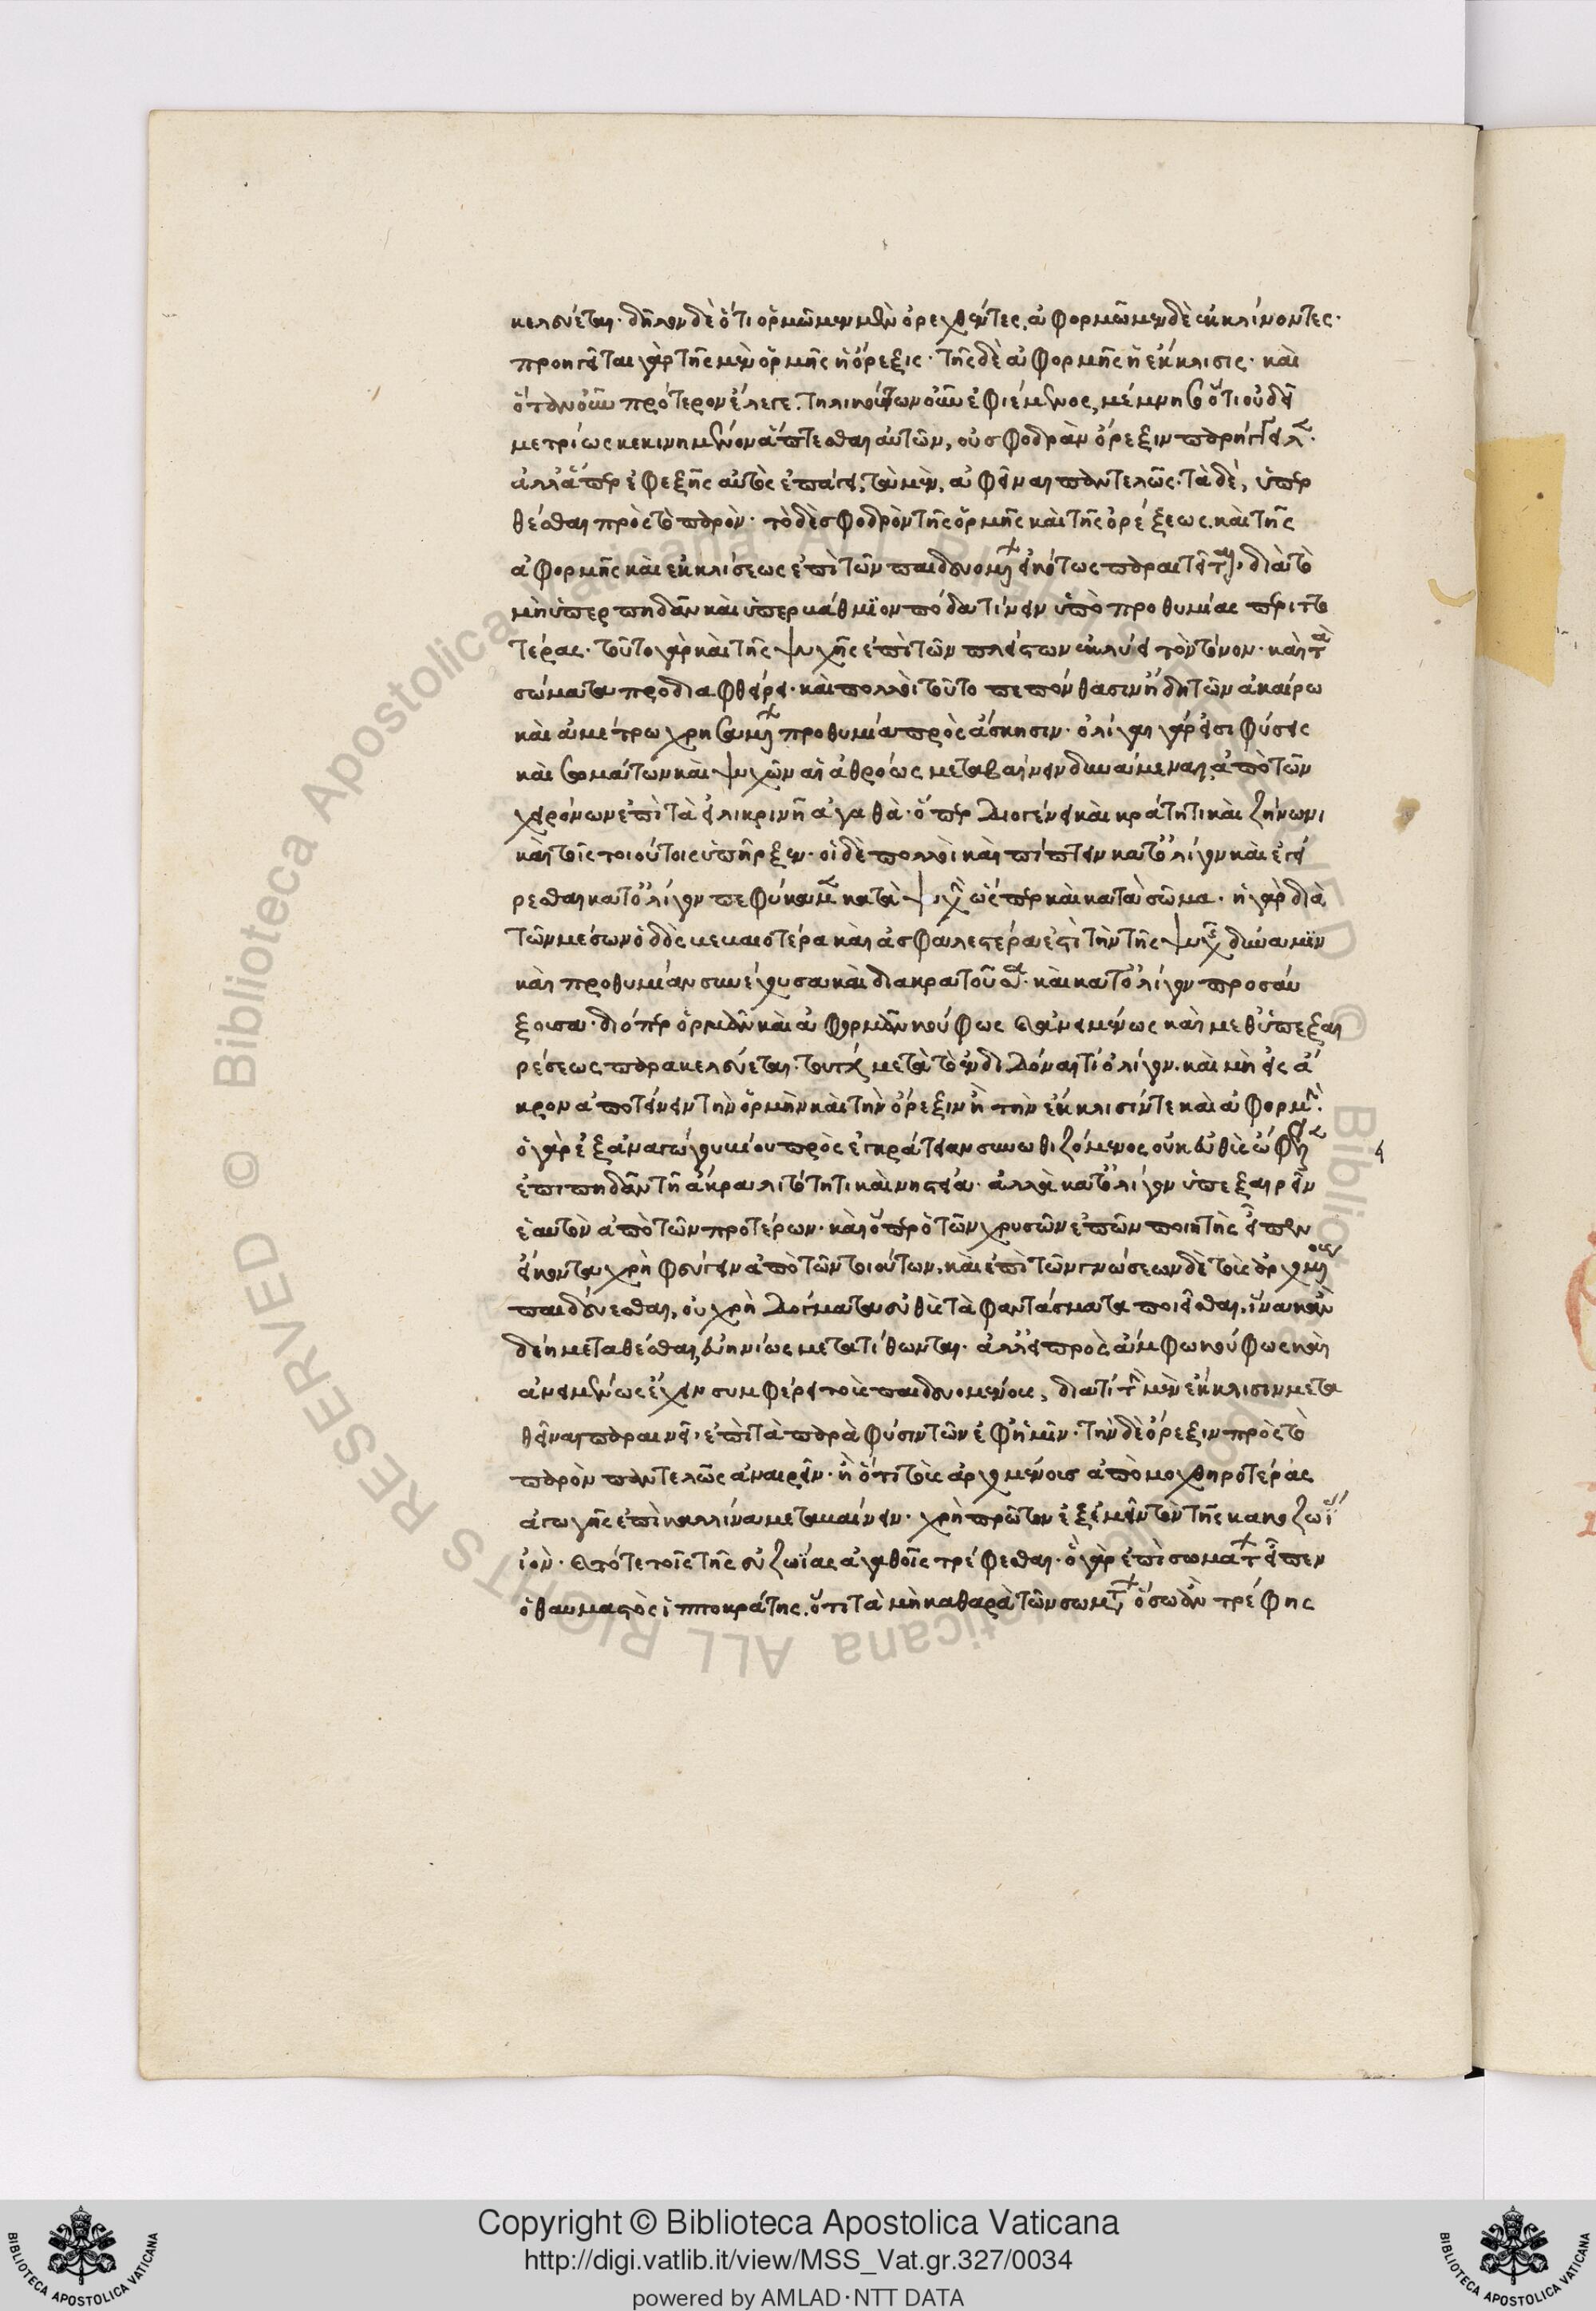 κελεύεται· δῆλον δὲ ὅτι ὁρμῶμεν μὲν ὀρεχθέντες, ἀφορμῶμεν δὲ ἐκκλίνοντες·
προηγεῖται γὰρ τῆς μὲν ὁρμῆς ἡ ὄρεξις· τῆς δὲ ἀφορμῆς ἡ ἔκκλισις· καὶ
ὅταν οὖν πρότερον ἔλεγε, τηλικούτων οὖν ἐφιέμενος, μέμνησο ὅτι οὐ δεῖ
μετρίως κεκινημένον ἅπτεσθαι αὐτῶν, οὐ σφοδρὰν ὄρεξιν παρήγγειλεν·
ἀλλ' ἅπερ ἐφεξῆς αὐτὸς ἐπάγει, τὰ μὲν, ἀφεῖναι παντελῶς· τὰ δὲ, ὑπερ
θέσθαι πρὸς τὸ παρὸν· τὸ δὲ σφοδρὸν τῆς ὁρμῆς καὶ τῆς ὀρέξεως, καὶ τῆς
ἀφορμῆς καὶ ἐκκλίσεως ἐπὶ τῶν παιδευομένων εἰκότως παραιτεῖται, διὰ τὸ
μὴ ὑπερπηδᾶν καὶ ὑπερκάθμιον πόδα τίνειν ὑπὸ προθυμίας περιττο
τέρας· τοῦτο γὰρ καὶ τῆς ψυχῆς ἐπὶ τῶν πλείστων ἐκλύει τὸν τόνον· καὶ τὰ
σώματα προδιαφθείρει· καὶ πολλοὶ τοῦτο πεπόνθασιν ἤδη τῶν ἀκαίρω
καὶ ἀμέτρω χρησαμένων προθυμία πρὸς ἄσκησιν· ὀλίγαι γάρ εἰσι φύσεις
καὶ σωμάτων καὶ ψυχῶν αἱ ἀθρόως μεταβαίνειν δυναμεναι, ἀπὸ τῶν
χειρόνων ἐπὶ τὰ εἰλικρινῆ ἀγαθὰ· ὅπερ Διογένει καὶ κράτητι καὶ ζήνωνι
καὶ τοῖς τοιούτοις ὑπῆρξεν· οἱ δὲ πολλοὶ καὶ πίπτειν κατ' ὀλίγον καὶ ἐγεί
ρεσθαι κατ' ὀλίγον πεφύκαμεν κατὰ ψυχὴν ὥσπερ καὶ κατὰ σῶμα· ἡ γὰρ διὰ
τῶν μέσων ὁδὸς βεβαιοτέρα καὶ ἀσφαλεστέρα ἐστὶ τὴν τῆς ψυχῆς δύναμιν
καὶ προθυμίαν συνέχουσα καὶ διακρατοῦσα· καὶ κατ' ὀλίγον προσαύ
ξουσα· διόπερ ὁρμᾶν καὶ ἀφορμᾶν κούφως καὶ ἀνειμένως καὶ μεθ' ὑπεξαι
ρέσεως παρακελεύεται· τουτέστι μετὰ τὸ ἐνδιδόναι τι ὀλίγον, καὶ μὴ εἰς ἄ
κρον ἀποτείνειν τὴν ὁρμὴν καὶ τὴν ὄρεξιν ἢ τὴν ἔκκλισίν τε καὶ ἀφορμήν·
ὁ γὰρ ἐξ ἀναγώγου βίου πρὸς ἐγκράτειαν συνωθιζόμενος οὐκ εὐθὺς
ἐπιπηδᾶν τῆ ἄκρα λιτότητι καὶ νηστεία· ἀλλὰ κατ' ὀλίγον ὑπεξαιρεῖν
ἑαυτὸν ἀπὸ τῶν προτέρων· καὶ ὅπερ ὁ τῶν χρυσῶν ἐπῶν ποιητὴς εἶπεν
εἴκοντα χρὴ φεύγειν ἀπὸ τῶν τοιούτων, καὶ ἐπὶ τῶν γνώσεων δὲ τοὺς ἀρχομένους
παιδεύεσθαι, οὐ χρὴ δόγματα εὐθὺς τὰ φαντάσματα ποιεῖσθαι, ἵνα κἂν
δέη μεταθέσθαι, εὐηνίως μετατίθωνται· ἀλλ' εἰ πρὸς ἄμφω κούφως καὶ
ἀνειμένως ἔχειν συμφέρει τοῖς παιδευομένοις, διατί τὴν μὲν ἔκκλισιν μετα
θεῖναι παραινεῖ, ἐπὶ τὰ παρὰ φύσιν τῶν ἐφ' ἡμῖν· τὴν δὲ ὄρεξιν πρὸς τὸ
παρὸν παντελῶς ἀναιρεῖν· ἢ ὅτι τοῖς ἀρχομένοις ἀπὸ μοχθηροτέρας
ἀγωγῆς ἐπὶ καλλίονα μεταβαίνειν· χρὴ πρῶτον ἐξεμεῖν τὸν τῆς κακοζωΐας
ἰὸν· καὶ τότε τοῖς τῆς εὐζωΐας ἀγαθοῖς τρέφεσθαι· ὃ γὰρ ἐπὶ σωμάτων εἶπεν
ὁ θαυμαστὸς ἱπποκράτης, ὅτι τὰ μὴ καθαρὰ τῶν σωμάτων, ὅσω ἂν τρέφης
Copyright © Biblioteca Apostolica Vaticana
http://digi.vatlib.it/view/MSS_Vat.gr.327/0034
powered by AMLAD·NTT DATA